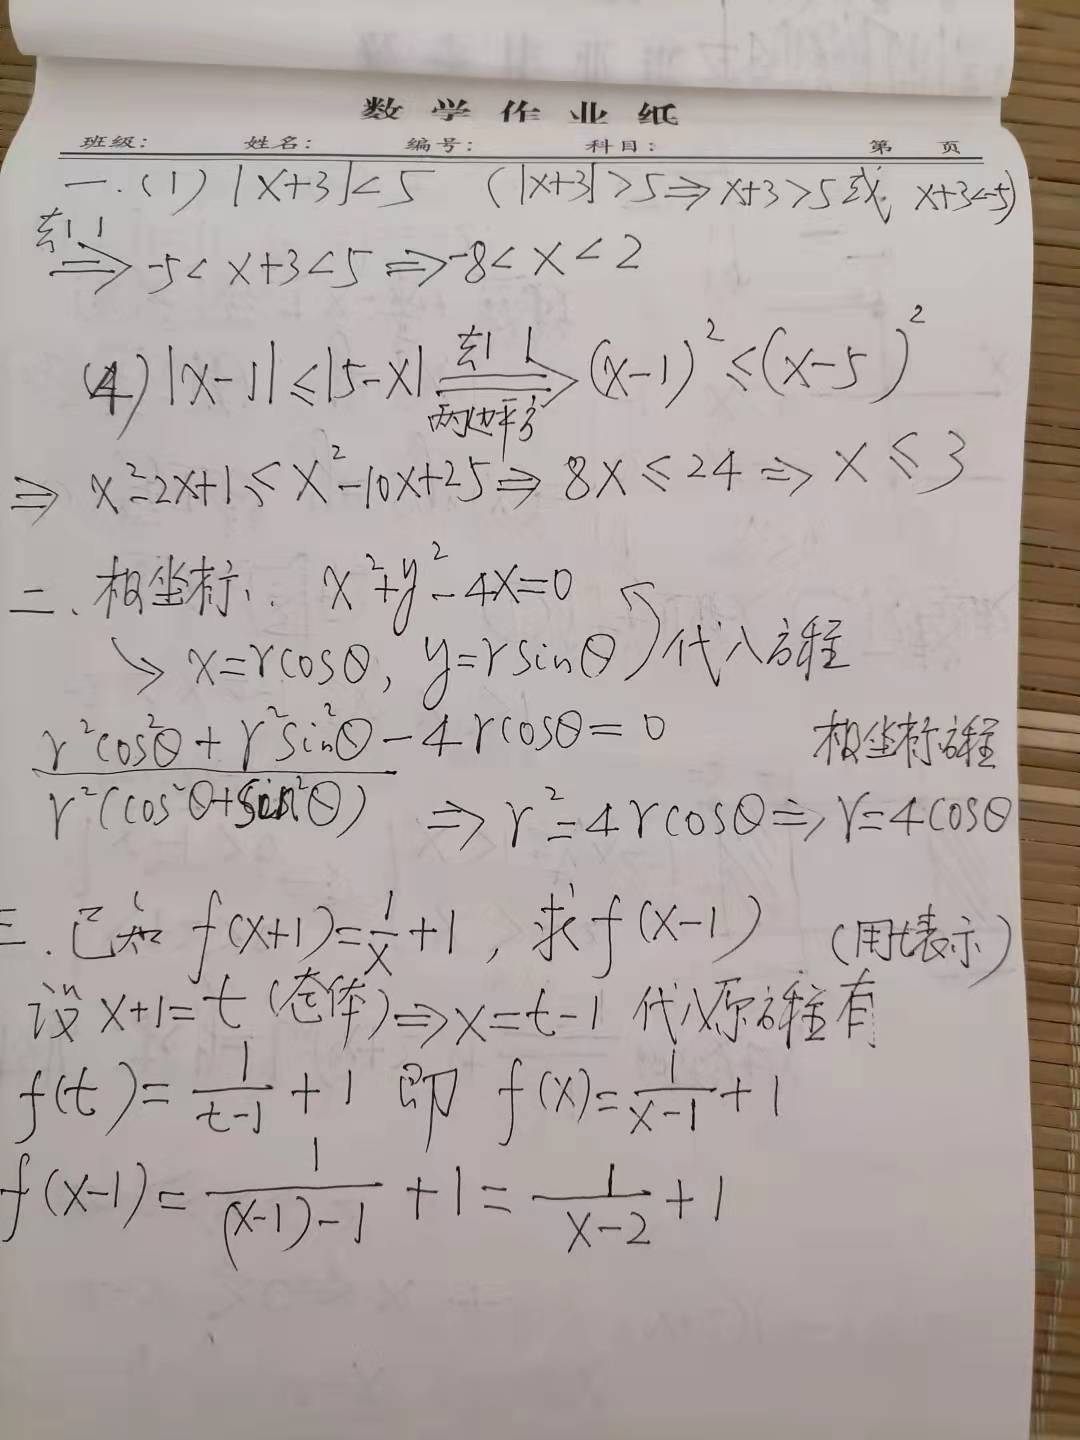 数学作业纸
班级: 姓名: 编号: 科目: 第 页
一.(1) |x+3|<5 (|x+3|>5⇒x+3>5或 x+3<-5)
去| |
⇒ -5<x+3<5⇒-8<x<2
(4) |x-1|≤|5-x| 去| | 两边平方 ⇒ (x-1)²≤(x-5)²
⇒ x²-2x+1≤x²-10x+25⇒8x≤24⇒x≤3
二、极坐标: x²+y²-4x=0
↘ x=rcosθ, y=rsinθ 代入方程
r²cos²θ+r²sin²θ-4rcosθ=0 极坐标方程
r²(cos²θ+sin²θ) ⇒r²=4rcosθ⇒r=4cosθ
三.已知f(x+1)=1/x+1, 求f(x-1) (用t表示)
设x+1=t(整体)⇒x=t-1 代入原方程有
f(t)=1/(t-1)+1 即 f(x)=1/(x-1)+1
f(x-1)=1/((x-1)-1)+1=1/(x-2)+1